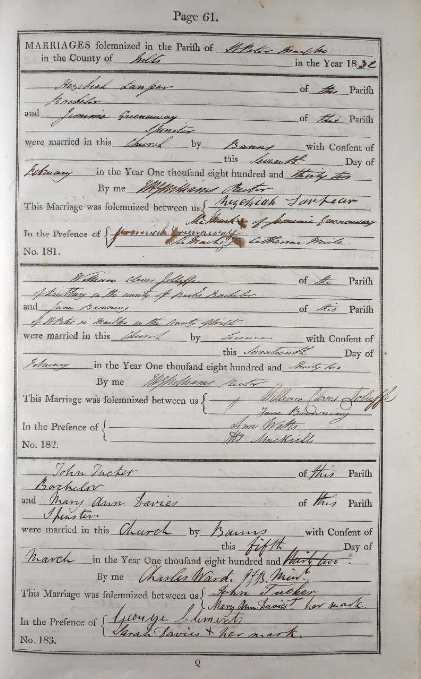 Page 61.
MARRIAGES solemnized in the Parish of St Peter
in the County of Wilts in the Year 1832
Hezekiah of this Parish
Bachelor
and Jemima Greenaway of this Parish
Spinster
were married in this Church by Banns with Consent of
this Seventh Day of
February in the Year One thousand eight hundred and thirty two
By me Williams Rector
This Marriage was solemnized between us { Hezekiah
The Mark of Jemima Greenaway
In the Presence of { Jeremiah Greenaway
The Mark of Catherine
No. 181.
William of the Parish
of in the county of Bachelor
and Jane Browning of this Parish
of St Peter in in the County of Wilts
were married in this Church by Licence with Consent of
this Seventeenth Day of
February in the Year One thousand eight hundred and thirty two
By me Williams Rector
This Marriage was solemnized between us { William
Jane Browning
In the Presence of { Ann Watts
No. 182.
John Tucker of this Parish
Bachelor
and Mary Ann Davies of this Parish
Spinster
were married in this Church by Banns with Consent of
this fifth Day of
March in the Year One thousand eight hundred and thirty two
By me Charles Ward.
This Marriage was solemnized between us { John Tucker
Mary Ann Davies + her mark.
In the Presence of { George Clements
Sarah Davies + her mark.
No. 183.
Q